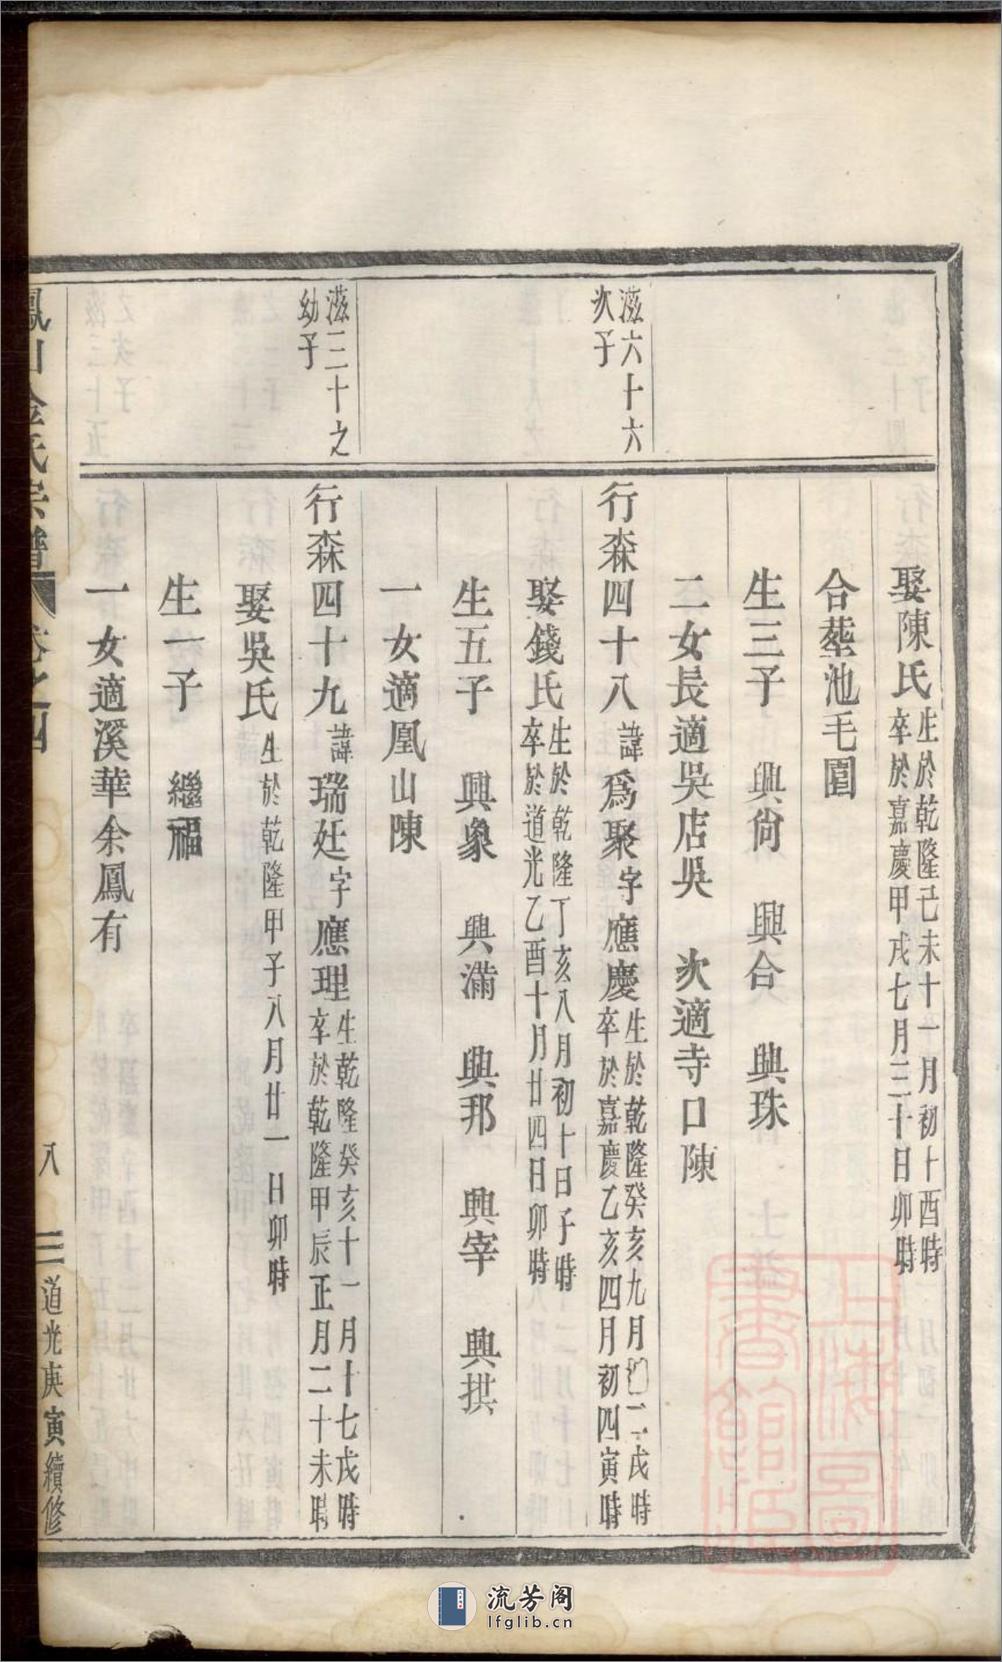 娶陳氏生於乾隆己未十一月初十酉時
卒於嘉慶甲戌七月三十日卯時
合塟池毛圍
生三子 興尙 興合 興珠
二女長適吳店吳 次適寺口陳
滋六十六
次子
行森四十八諱爲聚字應慶生於乾隆癸亥九月初二戌時
卒於嘉慶乙亥四月初四寅時
娶錢氏生於乾隆丁亥八月初十日子時
卒於道光乙酉十月廿四日卯時
生五子 興象 興滿 興邦 興宰 興拱
一女適凰山陳
滋三十之
幼子
行森四十九諱瑞廷字應理生乾隆癸亥十一月十七戌時
卒於乾隆甲辰正月二十未時
娶吳氏生於乾隆甲子八月廿一日卯時
生一子 繼福
一女適溪華余鳳有
鳳山金氏宗譜 卷之四 八 道光庚寅續修
上海圖書館藏
流芳阁
lfglib.cn